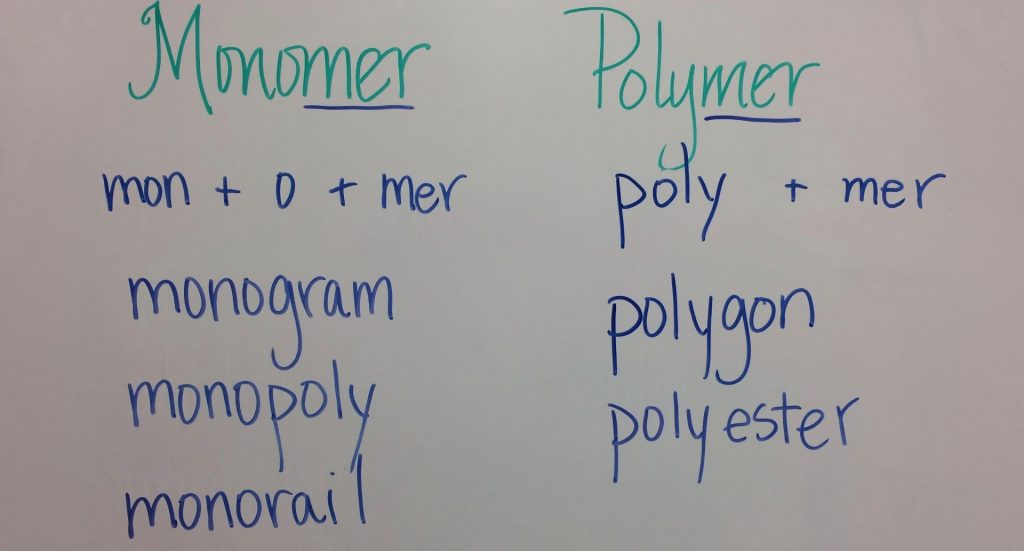 Monomer
mon + o + mer
monogram
monopoly
monorail
Polymer
poly + mer
polygon
polyester